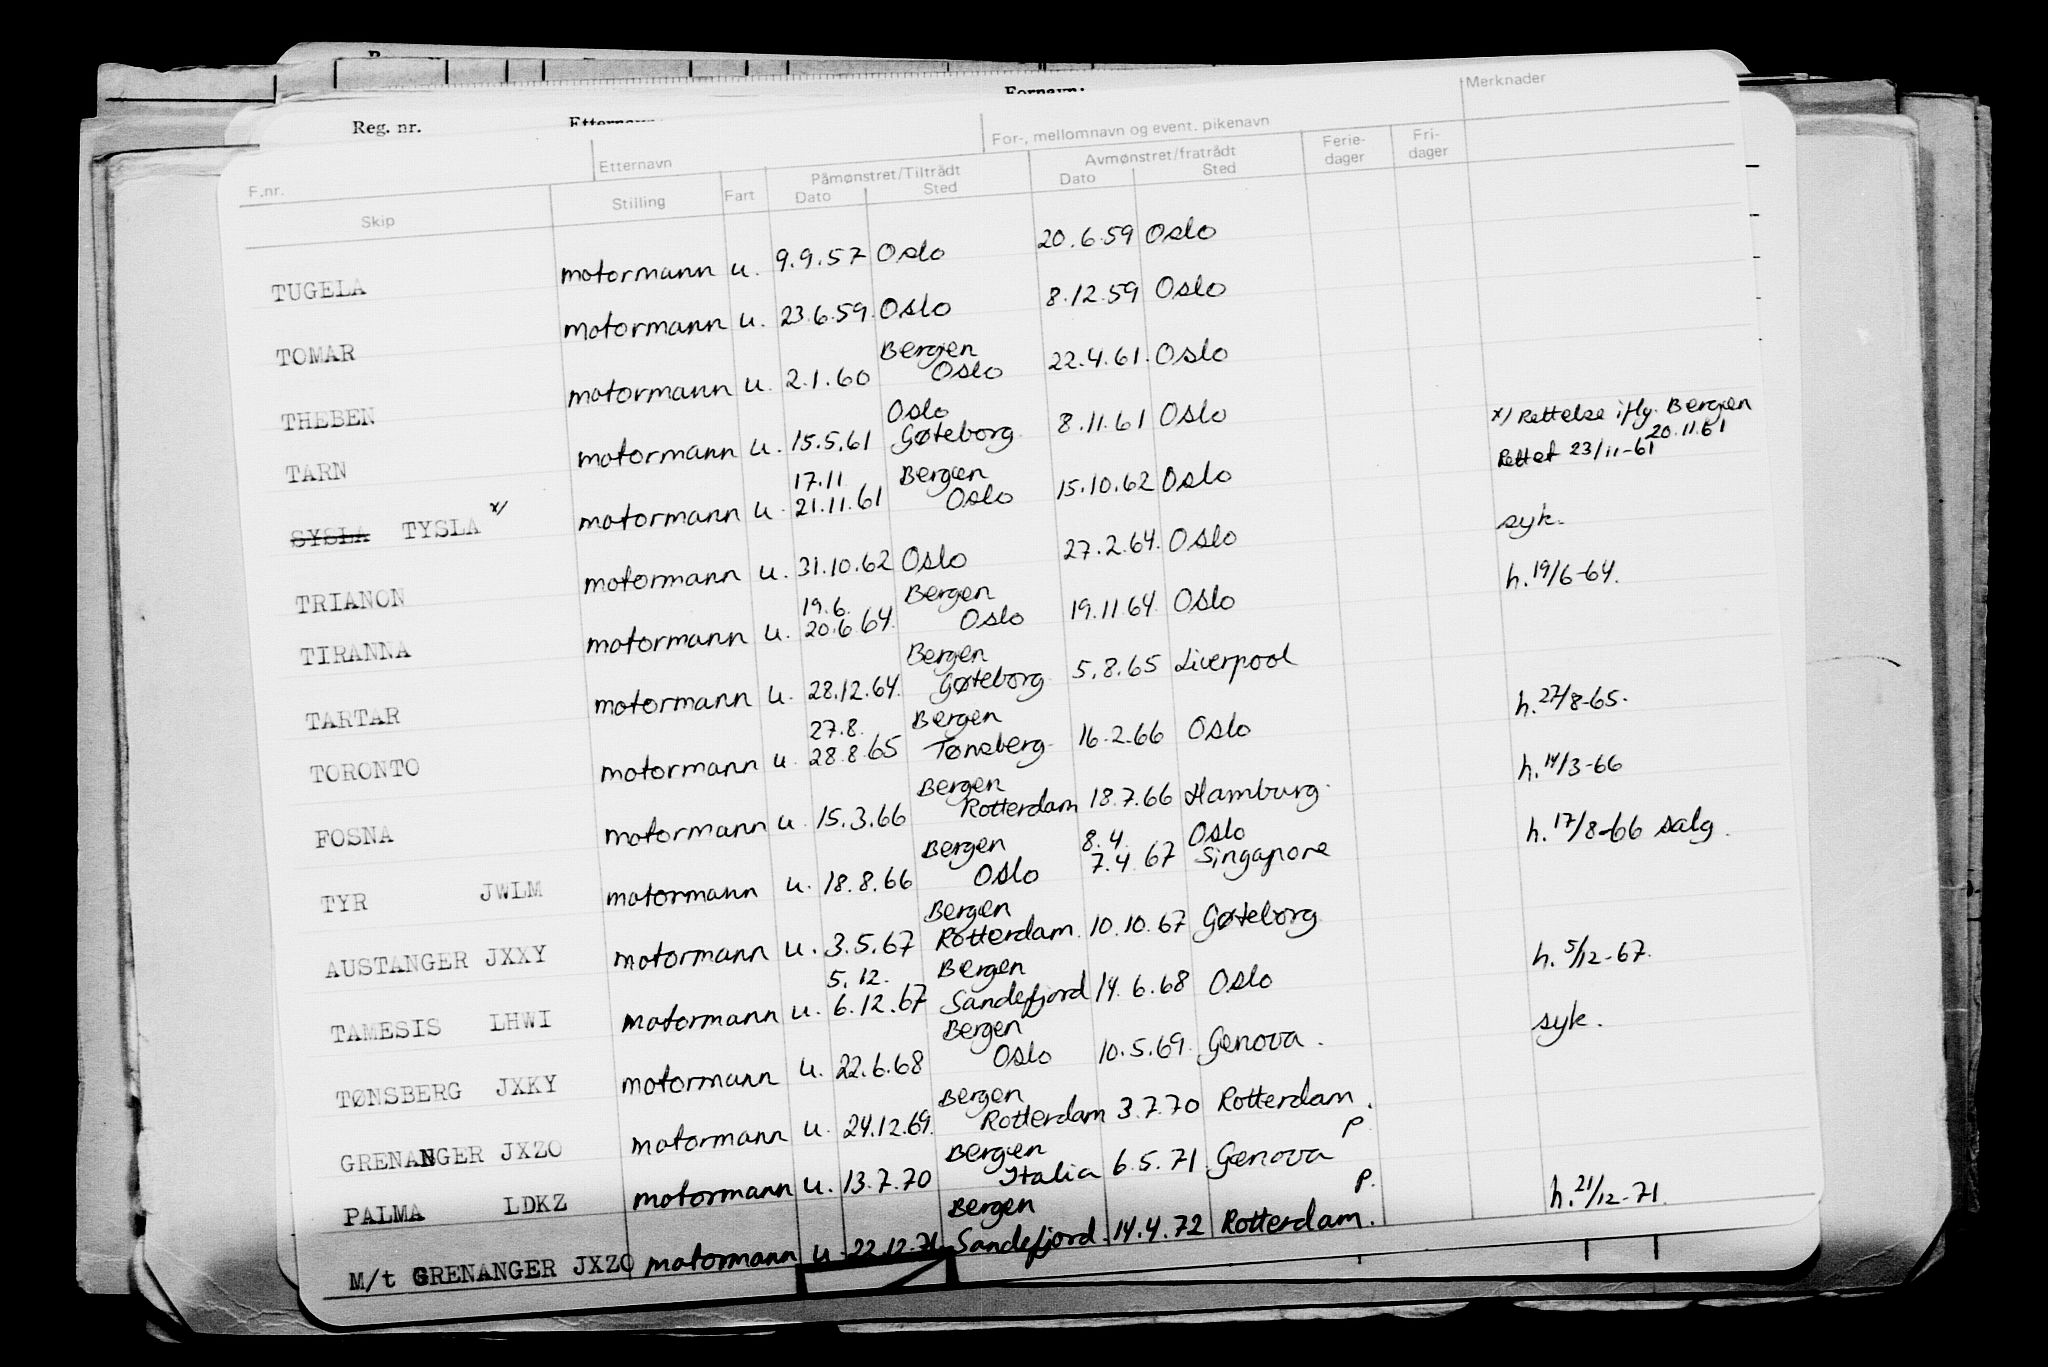 Reg. nr.
Etternavn
Fornavn:
F.nr. Etternavn For-, mellomnavn og event. pikenavn Merknader
Skip Stilling Fart Påmønstret/Tiltrådt Dato Sted Avmønstret/fratrådt Dato Sted Ferie-dager Fri-dager
TUGELA motormann u. 9.9.57 Oslo 20.6.59 Oslo
TOMAR motormann u. 23.6.59. Oslo 8.12.59 Oslo
Bergen
THEBEN motormann u. 2.1.60 Oslo 22.4.61. Oslo
Oslo
TARN motormann u. 15.5.61 Gøteborg. 8.11.61 Oslo x) Rettelse iflg. Bergen 20.11.61
17.11 Bergen Rettet 23/11-61
SYSLA TYSLA x) motormann u. 21.11.61 Oslo 15.10.62 Oslo
TRIANON motormann u. 31.10.62 Oslo 27.2.64. Oslo syk.
19.6. Bergen
TIRANNA motormann u. 20.6.64. Oslo 19.11.64. Oslo h. 19/6-64.
Bergen
TARTAR motormann u. 28.12.64. Gøteborg. 5.8.65 Liverpool
27.8. Bergen
TORONTO motormann u. 28.8.65 Tønsberg. 16.2.66 Oslo h. 27/8-65.
Bergen
FOSNA motormann u. 15.3.66 Rotterdam 18.7.66 Hamburg. h. 14/3-66
Bergen 8.4. Oslo
TYR JWLM motormann u. 18.8.66 Oslo 7.4.67 Singapore h. 17/8-66 salg.
Bergen
AUSTANGER JXXY motormann u. 3.5.67 Rotterdam. 10.10.67 Gøteborg
5.12. Bergen
TAMESIS LHWI motormann u. 6.12.67 Sandefjord 14.6.68 Oslo h. 5/12-67.
Bergen
TØNSBERG JXKY motormann u. 22.6.68 Oslo 10.5.69. Genova. syk.
Bergen
GRENANGER JXZO motormann u. 24.12.69. Rotterdam 3.7.70 Rotterdam.
Bergen p.
PALMA LDKZ motormann u. 13.7.70 Italia 6.5.71. Genova
Bergen p.
M/t GRENANGER JXZO motormann u. 22.12.71. Sandefjord. 14.4.72 Rotterdam. h. 21/12-71.